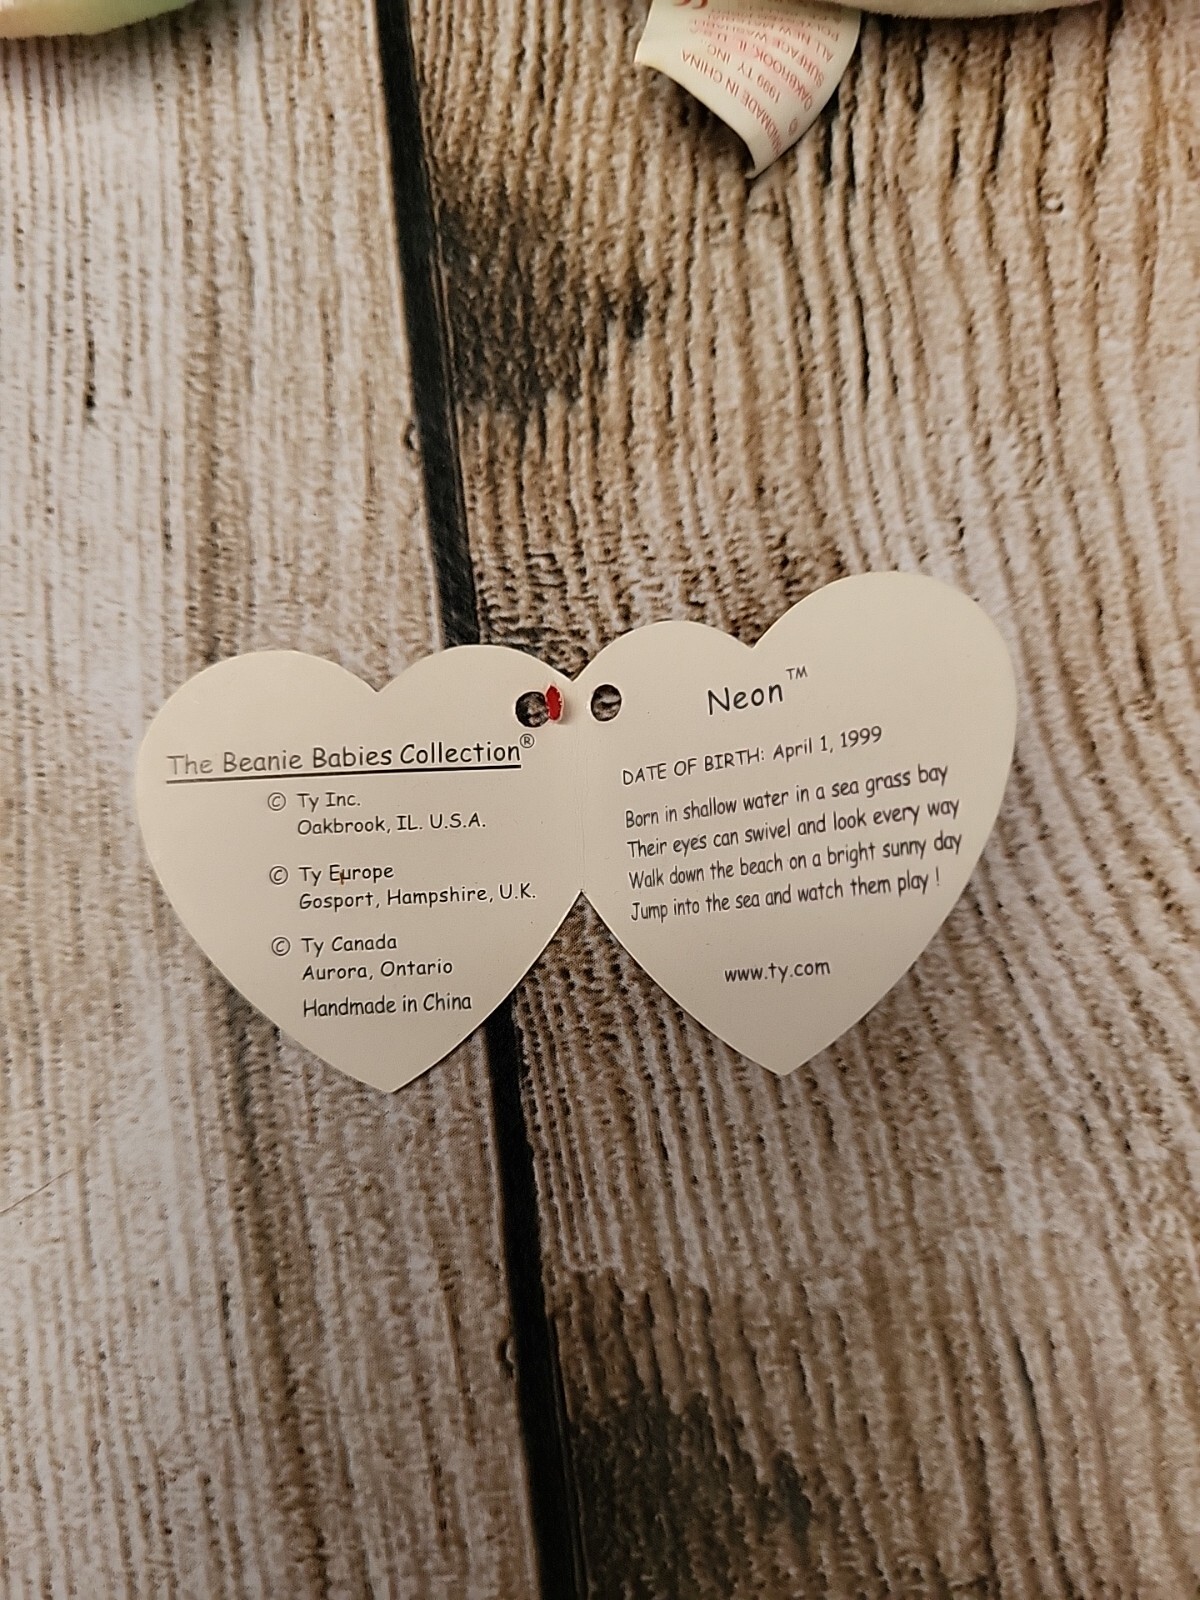 HNDMADE IN CHINA
© 1999 TY INC.
OAKBROOK, IL U.S.A.
SURFACE WASH
ALL NEW MATERIAL
The Beanie Babies Collection®
© Ty Inc.
Oakbrook, IL. U.S.A.
© Ty Europe
Gosport, Hampshire, U.K.
© Ty Canada
Aurora, Ontario
Handmade in China
Neon™
DATE OF BIRTH: April 1, 1999
Born in shallow water in a sea grass bay
Their eyes can swivel and look every way
Walk down the beach on a bright sunny day
Jump into the sea and watch them play !
www.ty.com